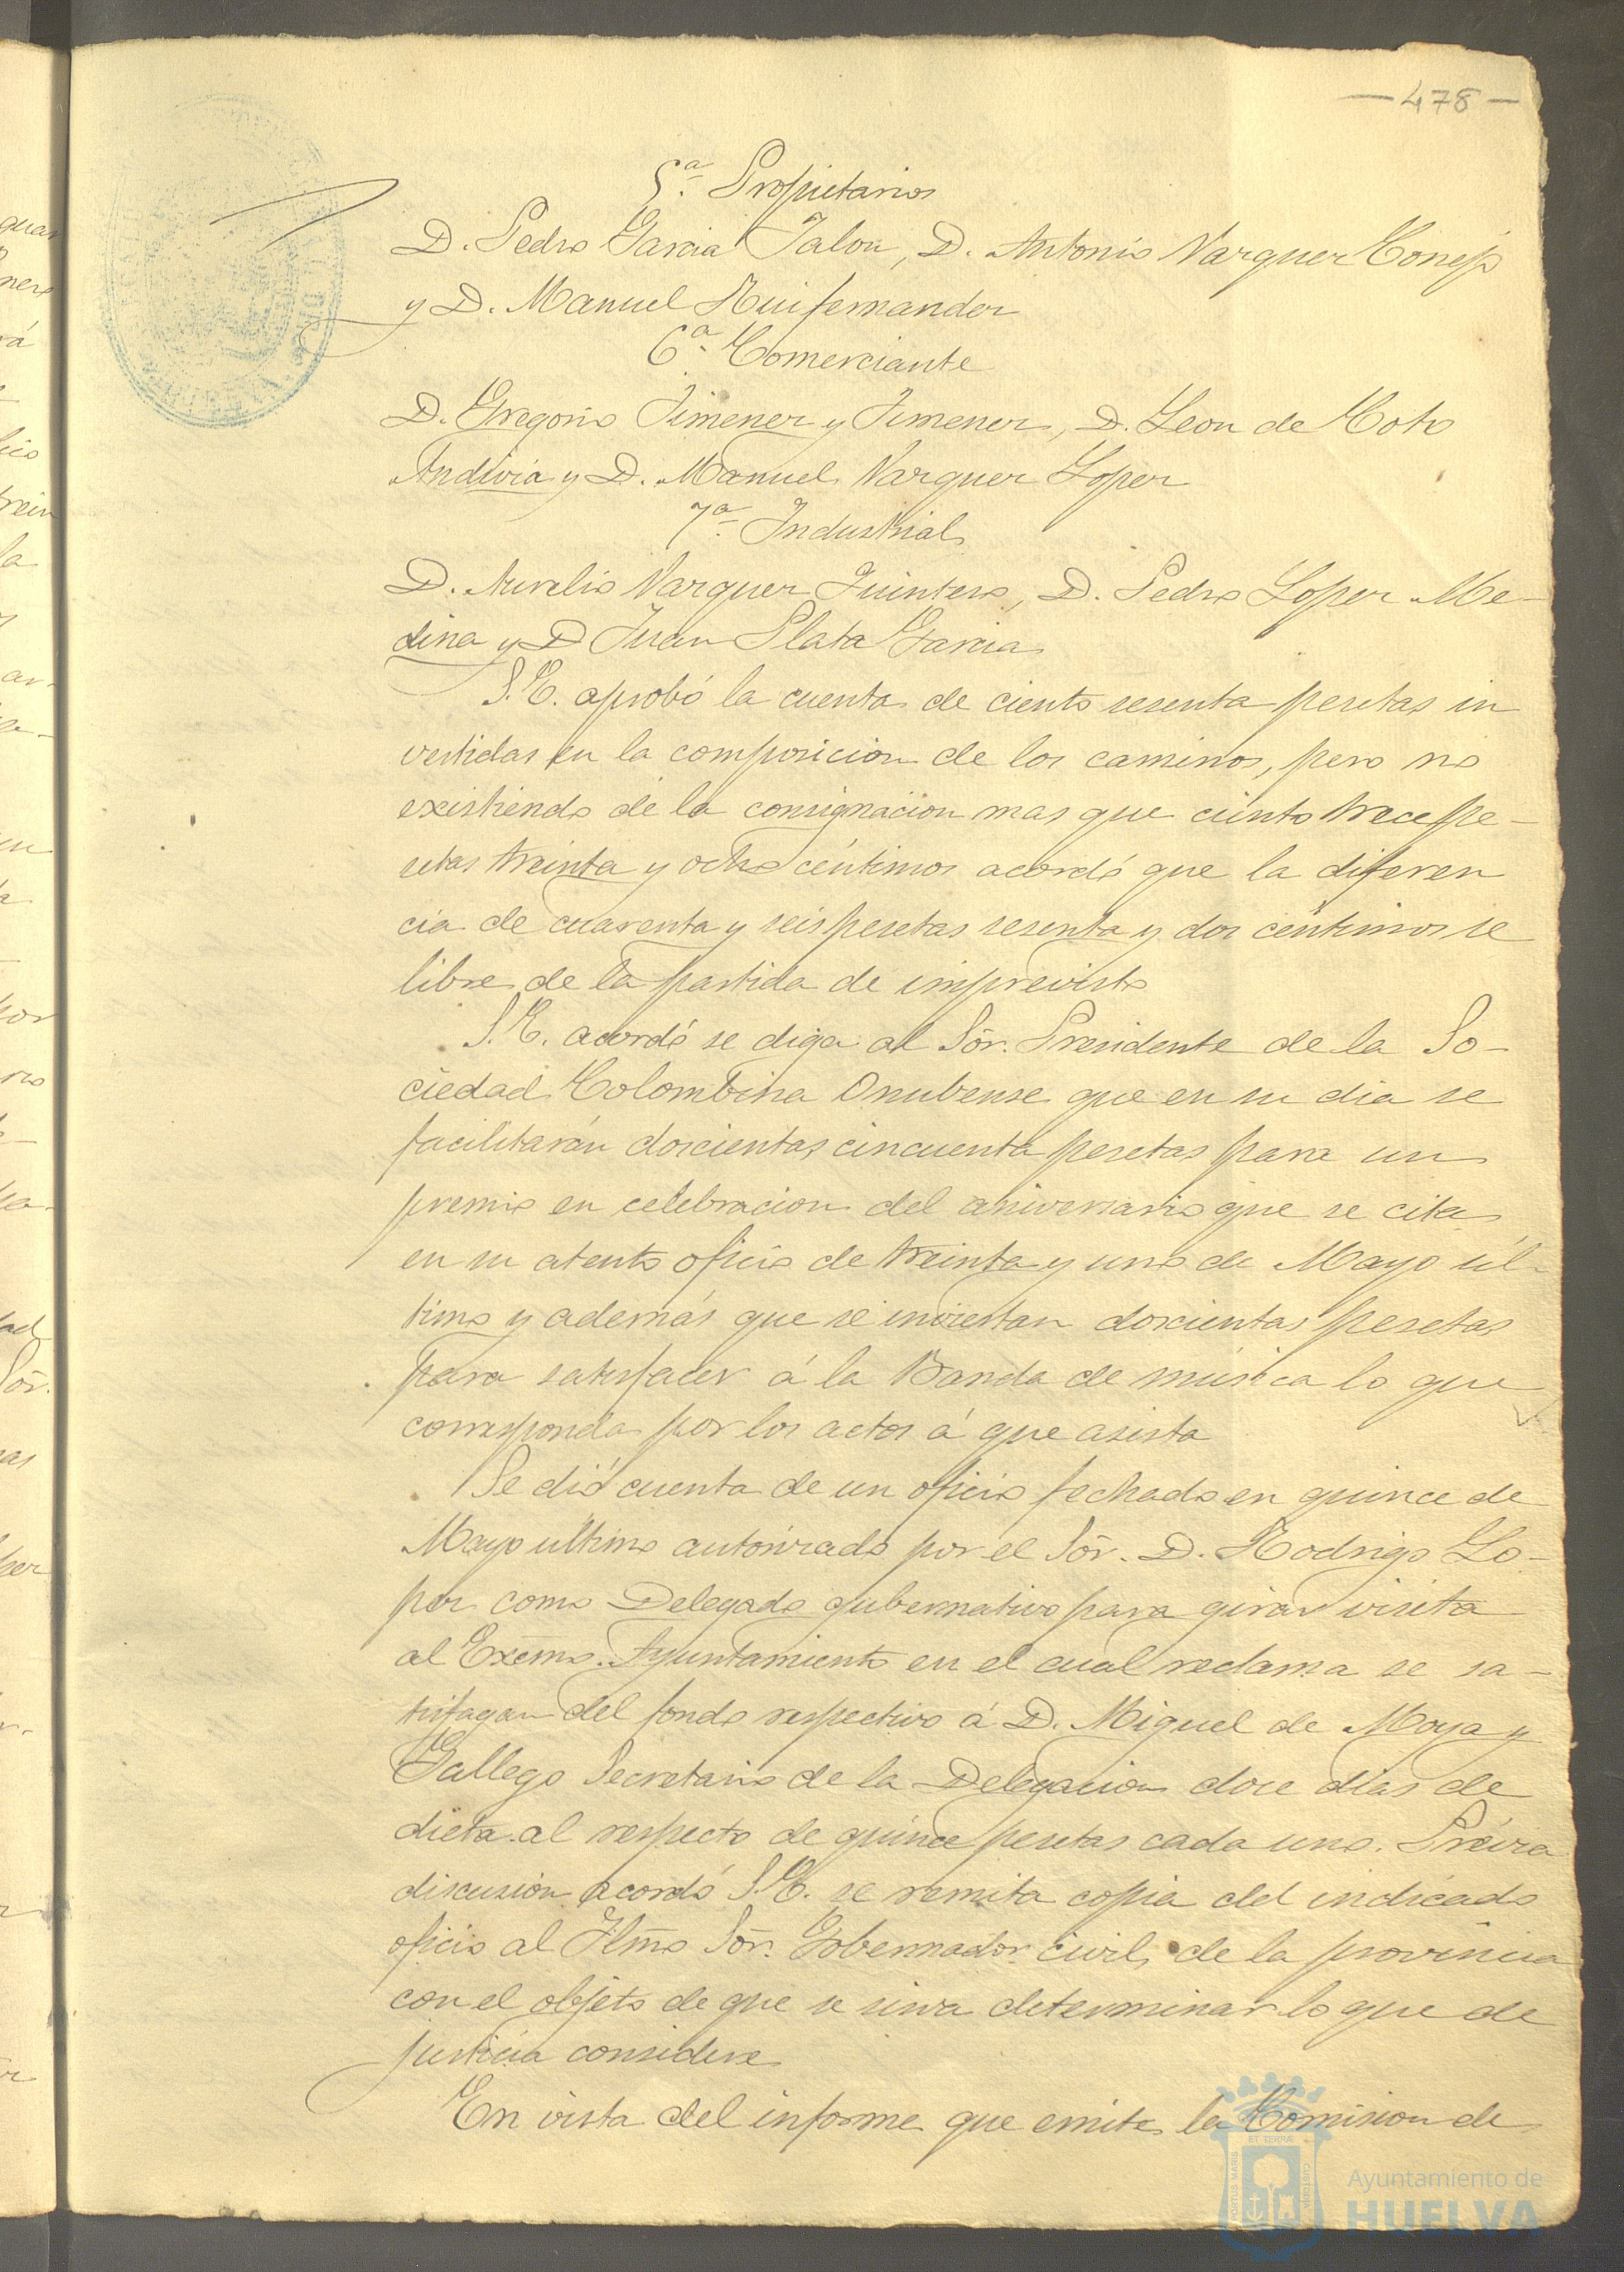 — 478 —
5ª Propietarios
D. Pedro Garcia Jalon, D. Antonio Vazquez Conejo
y D. Manuel Ruifernandez
6ª Comerciante
D. Gregorio Jimenez y Jimenez, D. Leon de Coto
Andivia y D. Manuel Vazquez Lopez
7ª Industrial
D. Aurelio Vazquez Quintero, D. Pedro Lopez Me-
dina y D Juan Plata Garcia
S.E. aprobó la cuenta de ciento sesenta pesetas in
vertidas en la composicion de los caminos, pero no
existiendo de la consignacion mas que ciento trece pe-
setas treinta y ocho céntimos acordó que la diferen
cia de cuarenta y seis pesetas sesenta y dos céntimos se
libre de la partida de imprevisto
S.E. acordó se diga al Sōr. Presidente de la So-
ciedad Colombina Onubense que en su dia se
facilitarán doscientas cincuenta pesetas para un
premio en celebracion del aniversario que se cita
en su atento oficio de treinta y uno de Mayo úl-
timo y además que se inviertan doscientas pesetas
para satisfacer á la Banda de música lo que
corresponda por los actos á que asista
Se dió cuenta de un oficio fechado en quince de
Mayo último autorizado por el Sōr. D. Rodrigo Lo-
pez como Delegado gubernativo para girar visita
al Excmo. Ayuntamiento en el cual reclama se sa-
tisfagan del fondo respectivo á D. Miguel de Moya y
Gallego Secretario de la Delegacion doce dias de
dieta al respecto de quince pesetas cada uno. Prévia
discusion acordó S.E. se remita copia del indicado
oficio al Iltmo Sōr. Gobernador civil de la provincia
con el objeto de que se sirva determinar lo que de
justicia considere
En vista del informe que emite la Comision de
Ayuntamiento de
HUELVA
PORTUS MARIS
ET TERRÆ
CUSTODIA